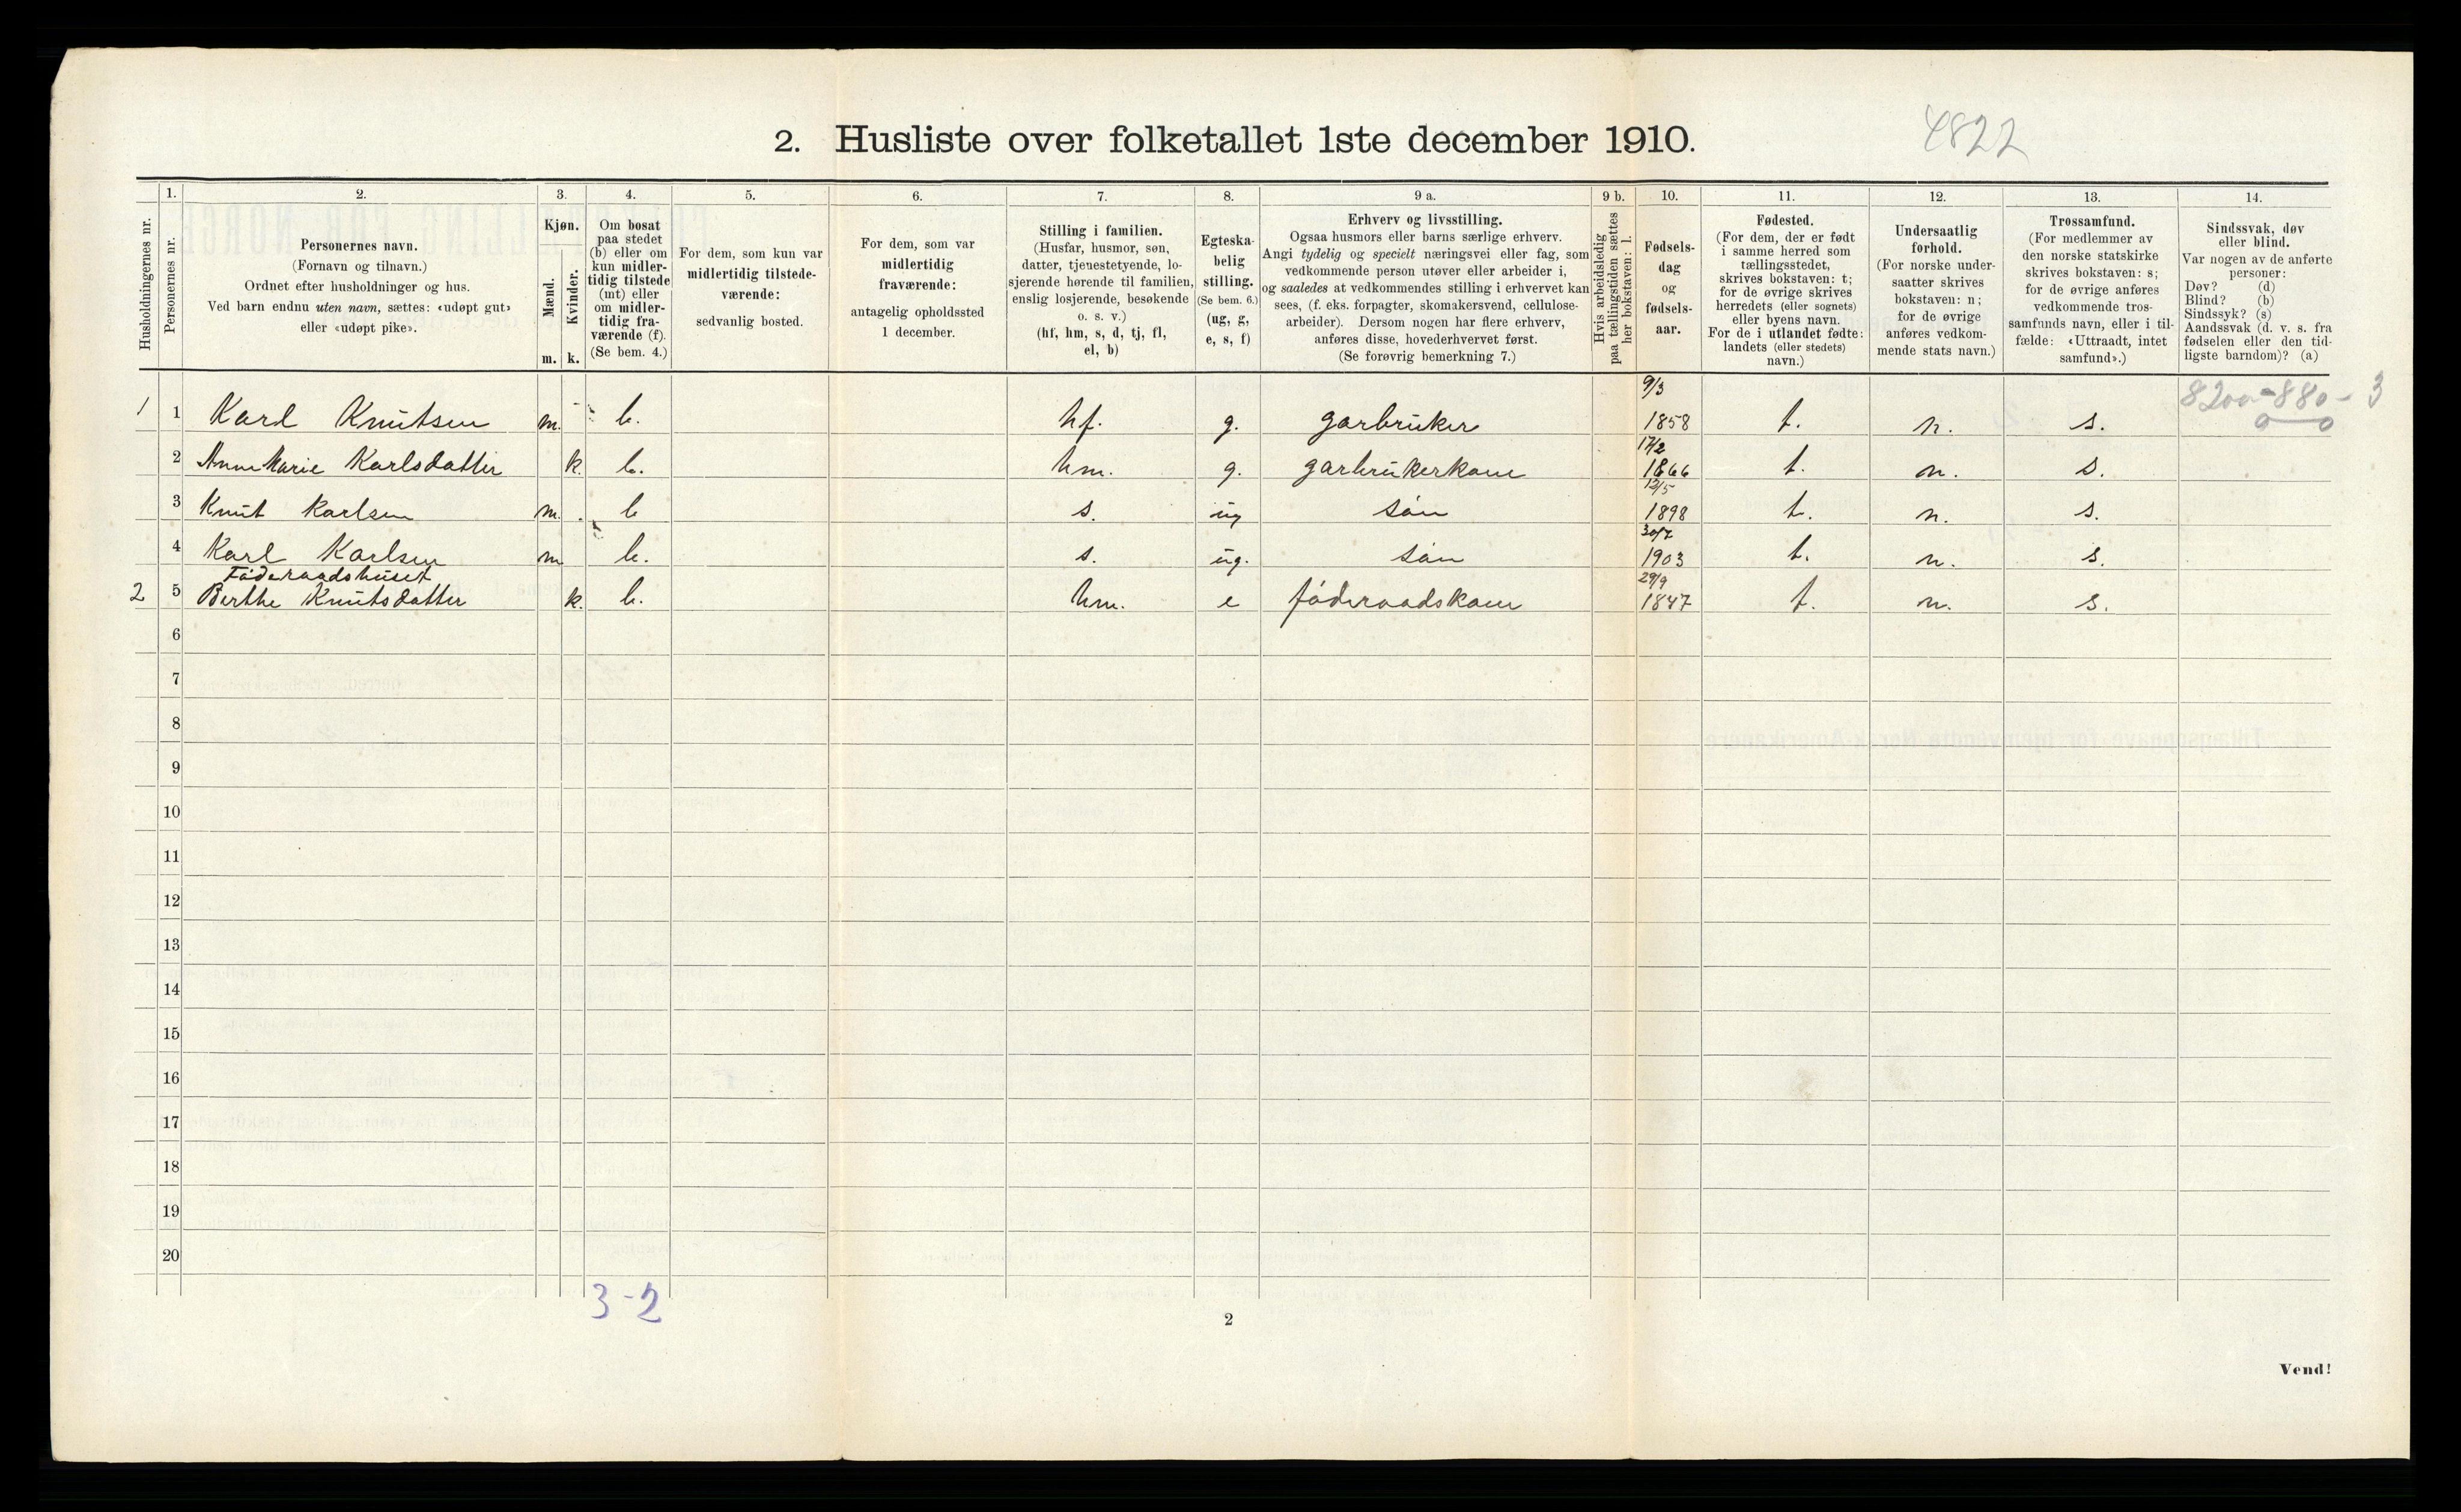 2. Husliste over folketallet 1ste december 1910.
4822
Husholdningernes nr.
1.
Personernes nr.
2.
Personernes navn.
(Fornavn og tilnavn.)
Ordnet efter husholdninger og hus.
Ved barn endnu uten navn, sættes: «udøpt gut»
eller «udøpt pike».
3.
Kjøn.
Mænd.
m.
Kvinder.
k.
4.
Om bosat
paa stedet
(b) eller om
kun midler-
tidig tilstede
(mt) eller
om midler-
tidig fra-
værende (f).
(Se bem. 4.)
5.
For dem, som kun var
midlertidig tilstede-
værende:
sedvanlig bosted.
6.
For dem, som var
midlertidig
fraværende:
antagelig opholdssted
1 december.
7.
Stilling i familien.
(Husfar, husmor, søn,
datter, tjenestetyende, lo-
sjerende hørende til familien,
enslig losjerende, besøkende
o. s. v.)
(hf, hm, s, d, tj, fl,
el, b)
8.
Egteska-
belig
stilling.
(Se bem. 6.)
(ug, g,
e, s, f)
9 a.
Erhverv og livsstilling.
Ogsaa husmors eller barns særlige erhverv.
Angi tydelig og specielt næringsvei eller fag, som
vedkommende person utøver eller arbeider i,
og saaledes at vedkommendes stilling i erhvervet kan
sees, (f. eks. forpagter, skomakersvend, cellulose-
arbeider). Dersom nogen har flere erhverv,
anføres disse, hovederhvervet først.
(Se forøvrig bemerkning 7.)
9 b.
Hvis arbeidsledig
paa tællingstiden sættes
her bokstaven: l.
10.
Fødsels-
dag
og
fødsels-
aar.
11.
Fødested.
(For dem, der er født
i samme herred som
tællingsstedet,
skrives bokstaven: t;
for de øvrige skrives
herredets (eller sognets)
eller byens navn.
For de i utlandet fødte:
landets (eller stedets)
navn.)
12.
Undersaatlig
forhold.
(For norske under-
saatter skrives
bokstaven: n;
for de øvrige
anføres vedkom-
mende stats navn.)
13.
Trossamfund.
(For medlemmer av
den norske statskirke
skrives bokstaven: s;
for de øvrige anføres
vedkommende tros-
samfunds navn, eller i til-
fælde: «Uttraadt, intet
samfund».)
14.
Sindssvak, døv
eller blind.
Var nogen av de anførte
personer:
Døv? (d)
Blind? (b)
Sindssyk? (s)
Aandssvak (d. v. s. fra
fødselen eller den tid-
ligste barndom)? (a)
8200-880-3
0 0
1 1 Karl Knutsen m. b. hf. g. garbruker 9/3 1858 t. n. s.
2 Anne Marie Karlsdatter k. b. hm. g. garbrukerkone 17/2 1866 t. n. s.
3 Knut Karlsen m. b s. ug søn 12/5 1898 t. n. s.
4 Karl Karlsen m b. s. ug. søn 30/7 1903 t. n. s.
Føderaadshuset
2 5 Berthe Knutsdatter k. b. hm. e føderaadskone 29/9 1847 t. n. s.
6
7
8
9
10
11
12
13
14
15
16
17
18
19
20
3-2
2
Vend!